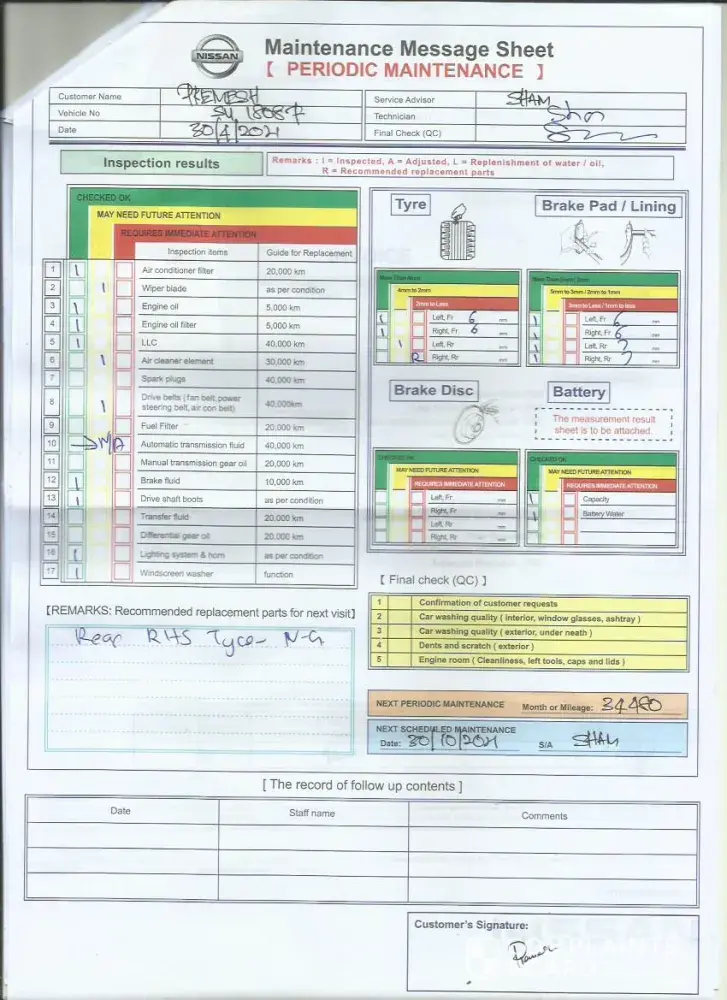 NISSAN
Maintenance Message Sheet
【 PERIODIC MAINTENANCE 】
Customer Name PREMESH
Vehicle No
Date 30/4/2021
Service Advisor SHAM
Technician Sham
Final Check (QC)
Inspection results
Remarks : I = Inspected, A = Adjusted, L = Replenishment of water / oil,
R = Recommended replacement parts
CHECKED OK
MAY NEED FUTURE ATTENTION
REQUIRES IMMEDIATE ATTENTION
Inspection items Guide for Replacement
1 I Air conditioner filter 20,000 km
2 I Wiper blade as per condition
3 I Engine oil 5,000 km
4 I Engine oil filter 5,000 km
5 I LLC 40,000 km
6 I Air cleaner element 30,000 km
7 Spark plugs 40,000 km
8 I Drive belts (fan belt, power
steering belt, air con belt) 40,000km
9 Fuel Filter 20,000 km
10 → N/A Automatic transmission fluid 40,000 km
11 Manual transmission gear oil 20,000 km
12 I Brake fluid 10,000 km
13 I Drive shaft boots as per condition
14 Transfer fluid 20,000 km
15 Differential gear oil 20,000 km
16 I Lighting system & horn as per condition
17 I Windscreen washer function
Tyre
More Than 4mm
4mm to 2mm
2mm to Less
I Left, Fr 6 mm
I Right, Fr 6 mm
I Left, Rr mm
R Right, Rr mm
Brake Pad / Lining
5mm to 3mm / 2mm to 1mm
3mm to Less / 1mm to less
I Left, Fr 6 mm
I Right, Fr 6 mm
I Left, Rr 7 mm
I Right, Rr 7 mm
Brake Disc
CHECKED OK
MAY NEED FUTURE ATTENTION
REQUIRES IMMEDIATE ATTENTION
Left, Fr mm
Right, Fr mm
Left, Rr mm
Right, Rr mm
Battery
The measurement result
sheet is to be attached.
CHECKED OK
MAY NEED FUTURE ATTENTION
REQUIRES IMMEDIATE ATTENTION
I Capacity
I Battery Water
【 Final check (QC) 】
1 Confirmation of customer requests
2 Car washing quality ( interior, window glasses, ashtray )
3 Car washing quality ( exterior, under neath )
4 Dents and scratch ( exterior )
5 Engine room ( Cleanliness, left tools, caps and lids )
【REMARKS: Recommended replacement parts for next visit】
Rear RHS Tyre - N-G
NEXT PERIODIC MAINTENANCE Month or Mileage: 34480
NEXT SCHEDULED MAINTENANCE
Date: 30/10/2021 S/A SHAM
[ The record of follow up contents ]
Date Staff name Comments
Customer's Signature: